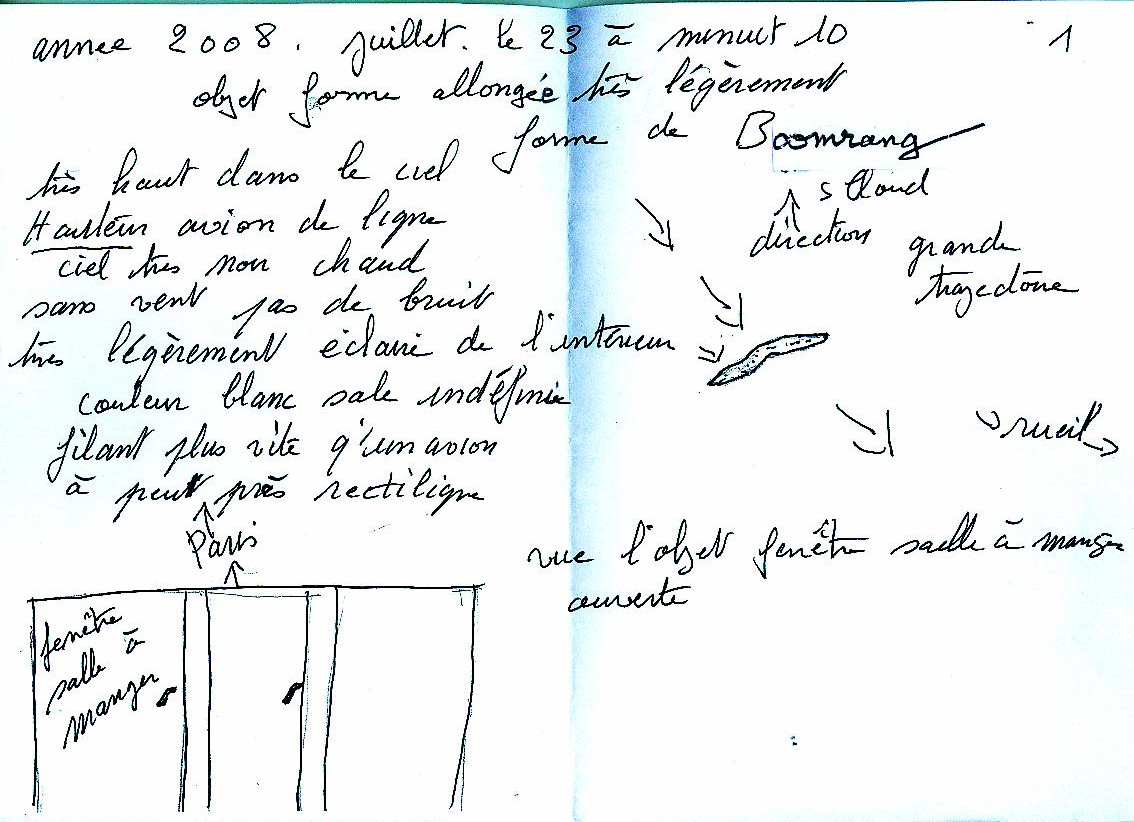 annee 2008. juillet. le 23 à minuit 10
1
objet forme allongée très légèrement
forme de Boomrang
très haut dans le ciel
Hauteur avion de ligne
ciel très noir chaud
sans vent pas de bruit
très légèrement éclairé de l'interieur
couleur blanc sale indéfinie
filant plus vite q'un avion
à peut près rectiligne
Paris
fenêtre
salle à
manger
s Cloud
direction
grande
trajectoire
rueil
vue l'objet fenêtre salle à manger
ouverte